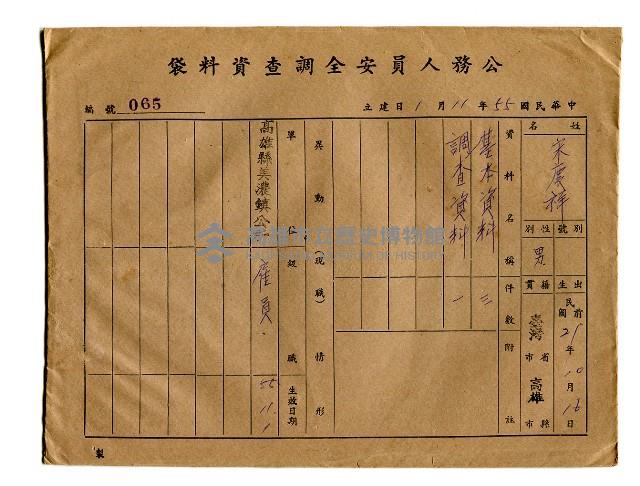 公務人員安全調查資料袋
中華民國55年11月1日建立
編號 065
姓名
宋慶祥
別號
性別
男
出生
民國前
21年10月16日
籍貫
臺灣省市
高雄縣市
資料名稱
件數
附註
基本資料 三
調查資料 一
異動(現職)情形
單位
級職
生效日期
高雄縣美濃鎮公
雇員
55.11.1
高雄市立歷史博物館
KAOHSIUNG MUSEUM OF HISTORY
製